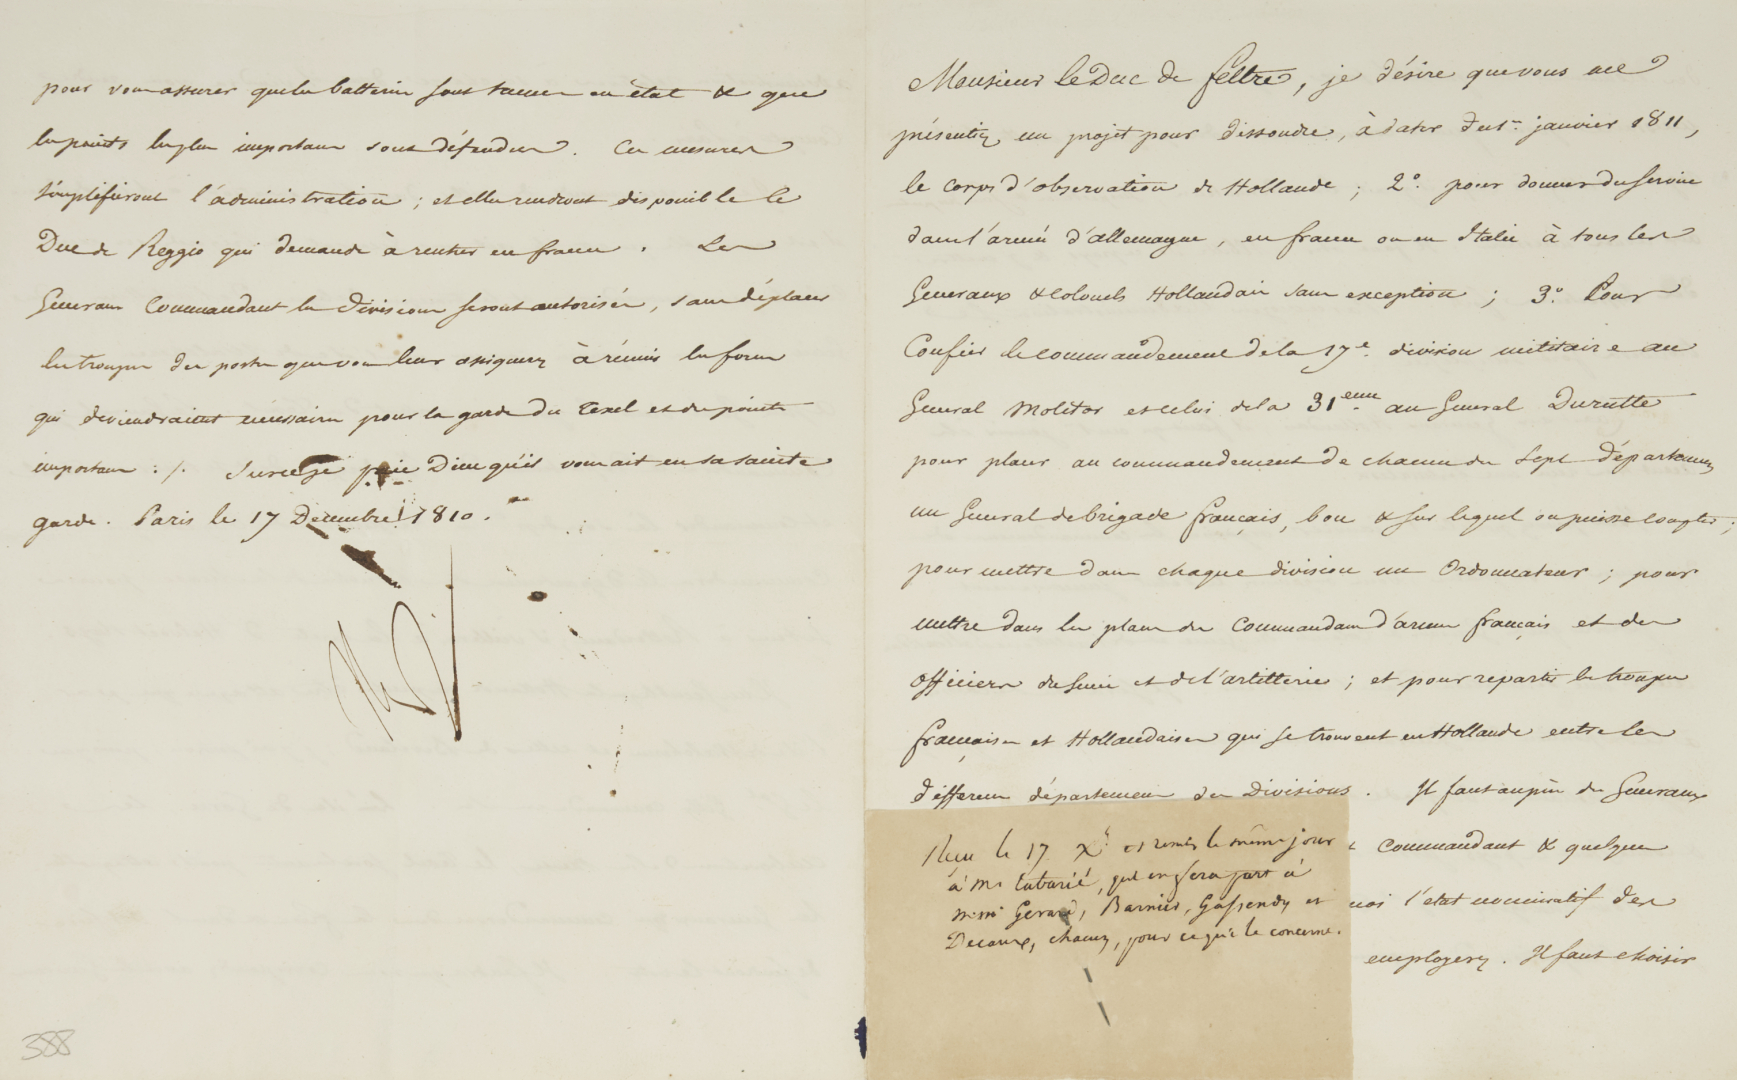 Monsieur le Duc de feltre, je désire que vous me
présentiez un projet pour dissoudre, à dater du 1er. janvier 1811,
le corps d'observation de Hollande ; 2°. pour donner du service
dans l'armée d'allemagne, en france ou en Italie à tous les
Generaux & Colonels Hollandais sans exception ; 3°. Pour
Confier le commandement de la 17e. division militaire au
General Molitor et celui de la 31eme. au General Durutte
pour placer au commandement de chacun des Sept départemens
un General de brigade français, bon & sur lequel on puisse compter ;
pour mettre dans chaque division un Ordonnateur ; pour
mettre dans les places des Commandans d'armes français et des
officiers du Genie et de l'artillerie ; et pour repartir les troupes
françaises et Hollandaises qui se trouvent en Hollande entre les
différens départemens des Divisions. Il faut aupiès des Generaux
Commandant & quelques
moi l'etat nominatif des
employerez. Il faut choisir
Reçu le 17 Xr. et remis le même jour
à Mr. Tabarié, qui en fera part à
Mrs. Gerard, Barnier, Gassendy et
Decaux, chacun, pour ce qui le concerne.
pour vous assurer que les batteries sont tenues en état & que
les points les plus importans sont défendus. Ces mesures
simplifieront l'administration ; et elles rendront disponible le
Duc de Reggio qui demande à rentrer en france. Les
Generaux Commandant les divisions seront autorisés, sans déplacer
les troupes des postes que vous leur assignerez à réunir les forces
qui deviendraient nécessaires pour la garde du Texel et des points
importans :/. Sur ce je prie Dieu qu'il vous ait en sa sainte
garde. Paris le 17 Décembre 1810.
388